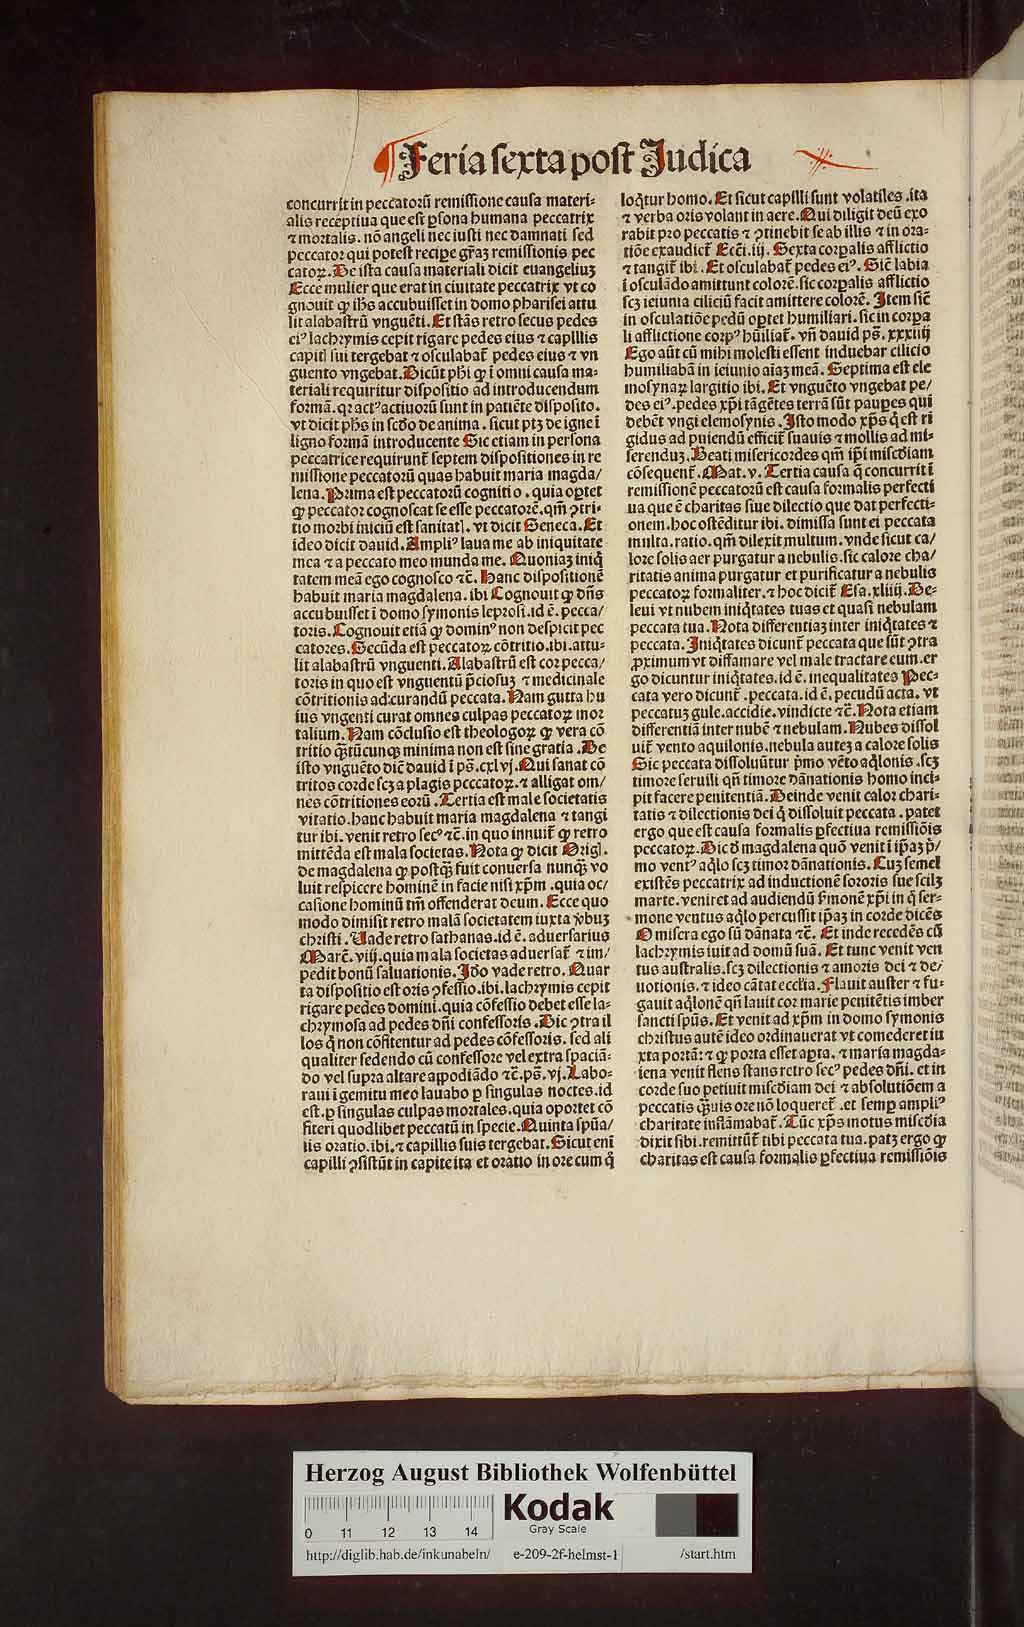 Feria sexta post Judica
concurrit in peccatorū remissione causa materi-
alis receptiua que est ꝑsona humana peccatrix
⁊ mortalis. nō angeli nec iusti nec damnati sed
peccator qui potest recipe gr̄aꝫ remissionis pec
catoꝝ. De ista causa materiali dicit euangeliuꝫ
Ecce mulier que erat in ciuitate peccatrix vt co
gnouit ꝙ ih̄s accubuisset in domo pharisei attu
lit alabastrū vnguēti. Et stās retro secus pedes
eiꝰ lachrymis cepit rigare pedes eius ⁊ capillis
capitꝭ sui tergebat ⁊ osculabat᷑ pedes eius ⁊ vn
guento vngebat. Dicūt ph̄i ꝙ ī omni causa ma-
teriali requiritur dispositio ad introducendum
formā. qꝛ actꝰ actiuorū sunt in patiēte disposito.
vt dicit ph̄s in scd̄o de anima. sicut ptꝫ de igne ī
ligno formā introducente Sic etiam in persona
peccatrice requirunt᷑ septem dispositiones in re
missione peccatorū quas habuit maria magda/
lena. Prima est peccatorū cognitio. quia oꝑtet
ꝙ peccator cognoscat se esse peccatorē. qm̄ ↄtri-
tio morbi iniciū est sanitatꝭ. vt dicit Seneca. Et
ideo dicit dauid. Ampliꝰ laua me ab iniquitate
mea ⁊ a peccato meo munda me. Quoniaꝫ iniq̇
tatem meā ego cognosco ⁊c̄. Hanc dispositionē
habuit maria magdalena. ibi Cognouit ꝙ dn̄s
accubuisset ī domo symonis leprosi. id ē. pecca/
toris. Cognouit etiā ꝙ dominꝰ non despicit pec
catores. Secūda est peccatoꝝ cōtritio. ibi. attu-
lit alabastrū vnguenti. Alabastrū est cor pecca/
toris in quo est vnguentū p̄ciosuꝫ ⁊ medicinale
cōtritionis ad curandū peccata. Nam gutta hu
ius vngenti curat omnes culpas peccatoꝝ mor
talium. Nam cōclusio est theologoꝝ ꝙ vera cō
tritio q̄ꝫtūcunqꝫ minima non est sine gratia. De
isto vnguēto dic̄ dauid ī ps̄. cxlvj. Qui sanat cō
tritos corde scꝫ a plagis peccatoꝝ. ⁊ alligat om/
nes cōtritiones eorū. Tertia est male societatis
vitatio. hanc habuit maria magdalena ⁊ tangi
tur ibi. venit retro secꝰ ⁊c̄. in quo innuit᷑ ꝙ retro
mittēda est mala societas. Nota ꝙ dicit Origꝭ.
de magdalena ꝙ postq̄ꝫ fuit conuersa nunqꝫ vo
luit respicere hominē in facie nisi xp̄m. quia oc/
casione hominū tm̄ offenderat deum. Ecce quo
modo dimisit retro malā societatem iuxta v̓buꝫ
christi. Vade retro sathanas. id ē. aduersarius
Marc̄. viij. quia mala societas aduersat᷑ ⁊ im/
pedit bonū saluationis. Jdo vade retro. Quar
ta dispositio est oris ↄfessio. ibi. lachrymis cepit
rigare pedes domini. quia cōfessio debet esse la-
chrymosa ad pedes dn̄i confessoris. Dic ↄtra il
los q̇ non cōfitentur ad pedes cōfessoris. sed ali
qualiter sedendo cū confessore vel extra spaciā-
do vel supra altare appodiādo ⁊c̄. ps̄. vj. Labo-
raui ī gemitu meo lauabo ꝑ singulas noctes. id
est. ꝑ singulas culpas mortales. quia oportet cō
fiteri quodlibet peccatū in specie. Quinta spūa/
lis oratio. ibi. ⁊ capillis suis tergebat. Sicut eni
capilli ↄsistūt in capite ita et oratio in ore cum q̇
loq̄tur homo. Et sicut capilli sunt volatiles. ita
⁊ verba oris volant in aere. Qui diligit deū exo
rabit pro peccatis ⁊ ↄtinebit se ab illis ⁊ in ora-
tiōe exaudiet᷑ Ecci. iij. Sexta corꝑalis afflictio
⁊ tangit᷑ ibi. Et osculabat᷑ pedes eiꝰ. Sic̄ labia
ī osculādo amittunt colorē. sic corꝑalis afflictio
scꝫ ieiunia ciliciū facit amittere colorē. Item sic̄
in osculatiōe pedū oꝑtet humiliari. sic in corꝑa
li afflictione corpꝰ hūiliat᷑. vn̄ dauid ps̄. xxxiiij
Ego aūt cū mihi molesti essent induebar cilicio
humiliabā in ieiunio aīaꝫ meā. Septima est ele
mosynaꝝ largitio ibi. Et vnguēto vngebat pe/
des eiꝰ. pedes xp̄i tāgētes terrā sūt pauꝑes qui
debēt vngi elemosynis. Isto modo xp̄s q̇ est ri
gidus ad puniendū efficit᷑ suauis ⁊ mollis ad mi-
serenduꝫ. Beati misericordes qm̄ ip̄i misc̄diam
cōsequent᷑. Mat. v. Tertia causa q̄ concurrit ī
remissionē peccatorū est causa formalis perfecti
ua que ē charitas siue dilectio que dat perfecti-
onem. hoc ostēditur ibi. dimissa sunt ei peccata
multa. ratio. qm̄ dilexit multum. vnde sicut ca/
lore solis aer purgatur a nebulis. sic calore cha/
ritatis anima purgatur et purificatur a nebulis
peccatoꝝ formaliter. ⁊ hoc dicit᷑ Esa. xliiij. De-
leui vt nubem iniq̇tates tuas et quasi nebulam
peccata tua. Nota differentiaꝫ inter iniq̇tates ⁊
peccata. Iniq̇tates dicunt᷑ peccata que sūt ↄtra
ꝓximum vt diffamare vel male tractare eum. er
go dicuntur iniq̇tates. id ē. inequalitates Pec-
cata vero dicunt᷑. peccata. id ē. pecudū acta. vt
peccatuꝫ gule. accidie. vindicte ⁊c̄. Nota etiam
differentiā inter nubē ⁊ nebulam. Nubes dissol
uit᷑ vento aquilonis. nebula auteꝫ a calore solis
Sic peccata dissoluūtur p̄mo vēto aq̇lonis. scꝫ
timore seruili qn̄ timore dānationis homo inci-
pit facere penitentiā. Deinde venit calor chari-
tatis ⁊ dilectionis dei q̇ dissoluit peccata. patet
ergo que est causa formalis ꝑfectiua remissiōis
peccatoꝝ. Dic d̓ magdalena quō venit ī ip̄aꝫ p̄/
mo ventꝰ aq̇lo scꝫ timor dānationis. Cuꝫ semel
existēs peccatrix ad inductionē sororis sue scilꝫ
marte. veniret ad audiendū s̓monē xp̄i in q̇ ser-
mone ventus aq̇lo percussit ip̄aꝫ in corde dicēs
O misera ego sū dānata ⁊c̄. Et inde recedēs cū
lachrymis iuit ad domū suā. Et tunc venit ven
tus australis. scꝫ dilectionis ⁊ amoris dei ⁊ de/
uotionis. ⁊ ideo cātat eccl̄ia. Flauit auster ⁊ fu-
gauit aq̇lonē qn̄ lauit cor marie penitētis imber
sancti spūs. Et venit ad xp̄m in domo symonis
christus autē ideo ordinauerat vt comederet iu
xta portā: ⁊ ꝙ porta esset aꝑta. ⁊ maria magda-
lena venit flens stans retro secꝰ pedes dn̄i. et in
corde suo petiuit misc̄diam dei ⁊ absolutiōem a
peccatis q̄ꝫuis ore nō loqueret᷑. et semꝑ ampliꝰ
charitate inflāmabat᷑. Tūc xp̄s motus misc̄dia
dixit sibi. remittūt᷑ tibi peccata tua. patꝫ ergo ꝙ
charitas est causa formalis ꝑfectiua remissiōis
Herzog August Bibliothek Wolfenbüttel
Kodak
Gray Scale
0 11 12 13 14
http://diglib.hab.de/inkunabeln/ e-209-2f-helmst-1 /start.htm